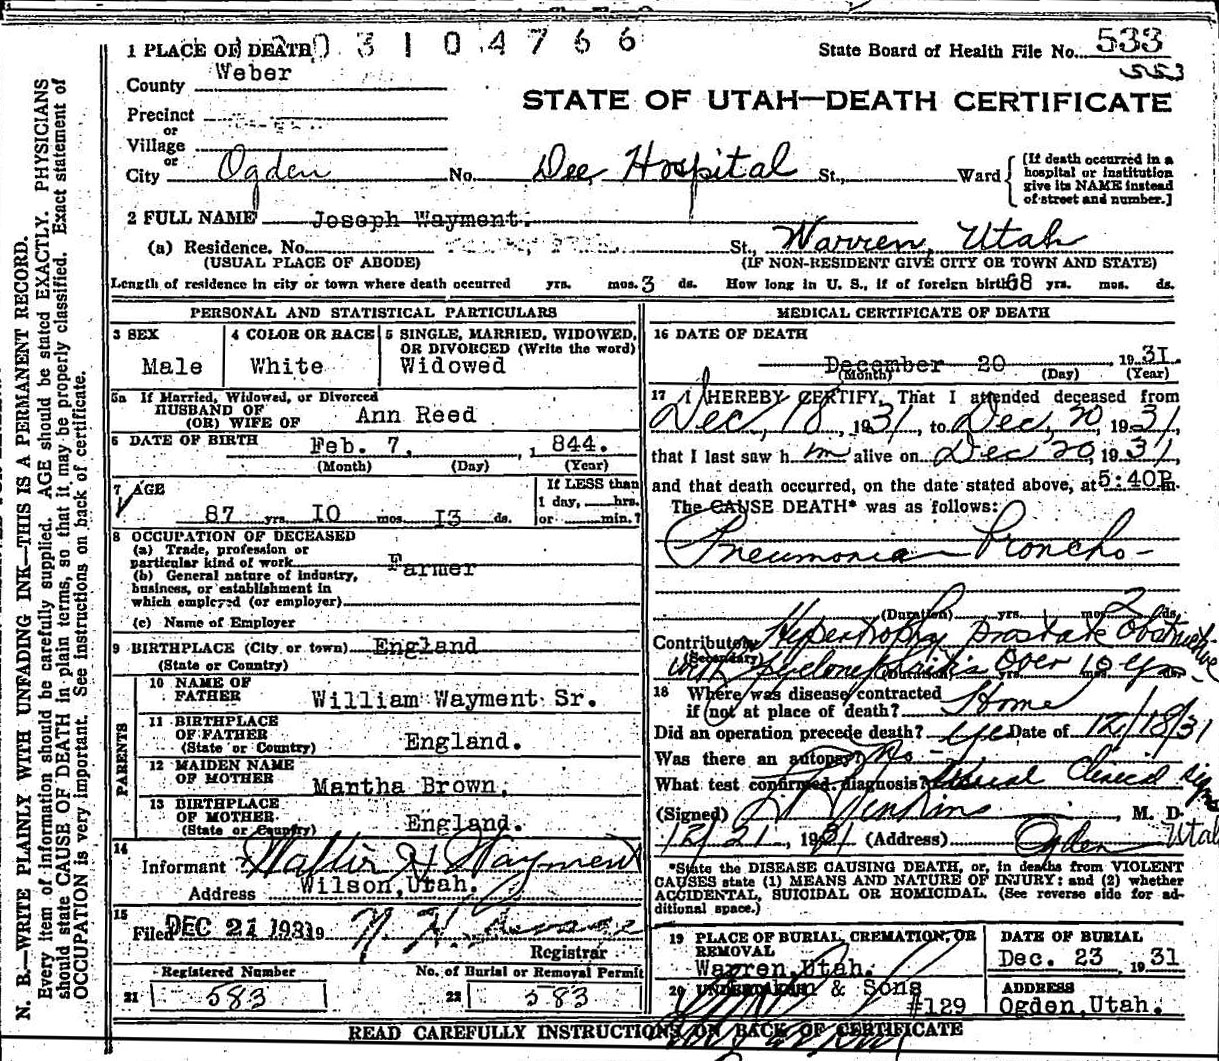 03104766
1 PLACE OF DEATH
State Board of Health File No. 533
553
County Weber
STATE OF UTAH—DEATH CERTIFICATE
Precinct
or
Village
or
City Ogden No. Dee Hospital St., Ward
[If death occurred in a
hospital or institution
give its NAME instead
of street and number.]
2 FULL NAME Joseph Wayment.
(a) Residence. No. St., Warren, Utah
(USUAL PLACE OF ABODE) (IF NON-RESIDENT GIVE CITY OR TOWN AND STATE)
Length of residence in city or town where death occurred yrs. mos. 3 ds. How long in U. S., if of foreign birth 68 yrs. mos. ds.
PERSONAL AND STATISTICAL PARTICULARS
3 SEX
Male
4 COLOR OR RACE
White
5 SINGLE, MARRIED, WIDOWED,
OR DIVORCED (Write the word)
Widowed
5a If Married, Widowed, or Divorced
HUSBAND OF
(OR) WIFE OF Ann Reed
6 DATE OF BIRTH Feb. 7, 1844.
(Month) (Day) (Year)
7 AGE
87 yrs. 10 mos. 13 ds.
If LESS than
1 day, hrs.
or min.?
8 OCCUPATION OF DECEASED
(a) Trade, profession or
particular kind of work Farmer
(b) General nature of industry,
business, or establishment in
which employed (or employer)
(c) Name of Employer
9 BIRTHPLACE (City or town) England
(State or Country)
PARENTS
10 NAME OF
FATHER William Wayment Sr.
11 BIRTHPLACE
OF FATHER
(State or Country) England.
12 MAIDEN NAME
OF MOTHER Martha Brown.
13 BIRTHPLACE
OF MOTHER
(State or Country) England.
14
Informant Walter H Wayment
Address Wilson, Utah.
15
Filed DEC 21 1931 19
Registrar
Registered Number
21 583
No. of Burial or Removal Permit
22 583
MEDICAL CERTIFICATE OF DEATH
16 DATE OF DEATH
December 20 1931.
(Month) (Day) (Year)
17 I HEREBY CERTIFY, That I attended deceased from
Dec, 18, 1931, to Dec, 20, 1931,
that I last saw him alive on Dec 20, 1931,
and that death occurred, on the date stated above, at 5:40P.m.
The CAUSE DEATH* was as follows:
Pneumonia Broncho-
(Duration) yrs. mos. 2 ds.
Contributory Hypertrophy prostate obstructive
(Secondary) with pyelonephritis Over 10 yrs
(Duration) yrs. mos. ds.
18 Where was disease contracted
if (not at place of death? Home
Did an operation precede death? yes Date of 12/18/31
Was there an autopsy? No
What test confirmed diagnosis? Usual Clinical signs
(Signed) Jenkins, M. D.
12/21, 1931 (Address) Ogden Utah
*State the DISEASE CAUSING DEATH, or, in deaths from VIOLENT
CAUSES state (1) MEANS AND NATURE OF INJURY; and (2) whether
ACCIDENTAL, SUICIDAL OR HOMICIDAL. (See reverse side for ad-
ditional space.)
19 PLACE OF BURIAL, CREMATION, OR
REMOVAL
Warren, Utah.
DATE OF BURIAL
Dec. 23 1931
20 UNDERTAKER & Sons
#129
ADDRESS
Ogden, Utah.
READ CAREFULLY INSTRUCTIONS ON BACK OF CERTIFICATE
N. B.—WRITE PLAINLY WITH UNFADING INK—THIS IS A PERMANENT RECORD.
Every item of information should be carefully supplied. AGE should be stated EXACTLY. PHYSICIANS
should state CAUSE OF DEATH in plain terms, so that it may be properly classified. Exact statement of
OCCUPATION is very important. See instructions on back of certificate.